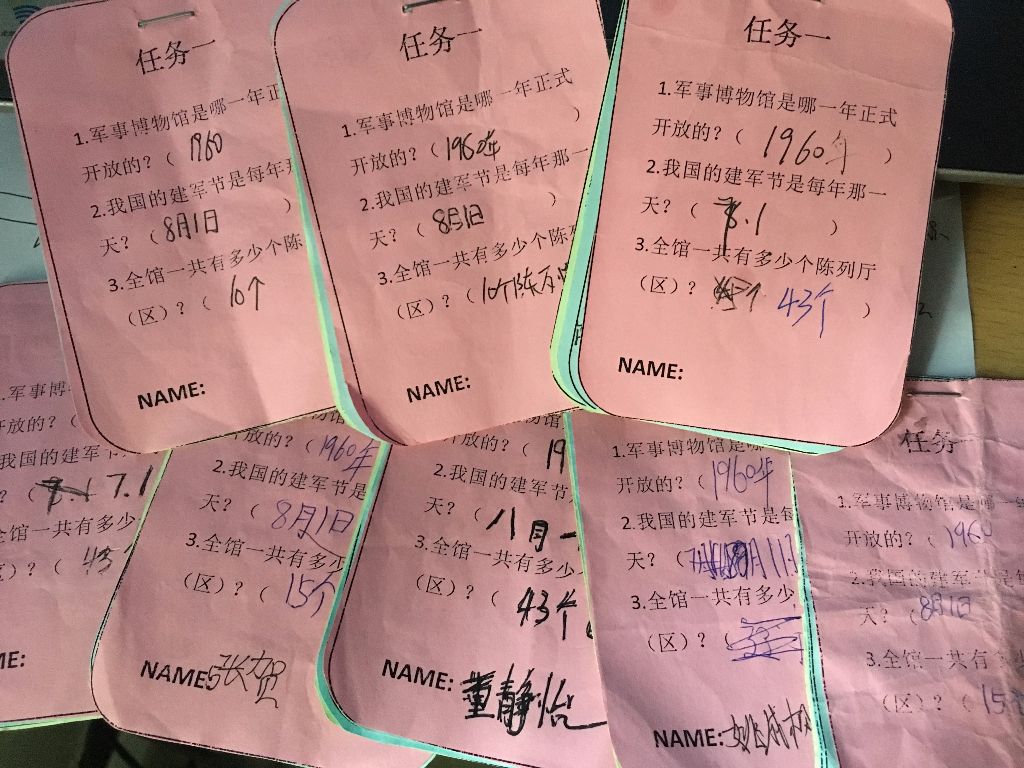 任务一
1.军事博物馆是哪一年正
开放的？（ 1960
2.我国的建军节是每年那
天？（ 8月1日 ）
3.全馆一共有多少个陈
（区）？（ 10个
NAME:
任务一
1.军事博物馆是哪一年正式
开放的？（ 1960年 ）
2.我国的建军节是每年那一
天？（ 8月1日 ）
3.全馆一共有多少个陈列
（区）？（ 10个陈
NAME:
任务一
1.军事博物馆是哪一年正式
开放的？（ 1960年 ）
2.我国的建军节是每年那一
天？（ 8.1 ）
3.全馆一共有多少个陈列厅
（区）？ 43个 ）
NAME:
.军事博
开放的？（
我国的建军节
？（ 7.1
全馆一共有多少
）？（ 43
ME:
放的？（1960年
2.我国的建军节是
天？（ 8月1日
3.全馆一共有多少
（区）？（ 15个
NAME:张贺
放的？（ 19
2.我国的建军节是每年
天？（ 八月一
3.全馆一共有多少
（区）？（ 43个
NAME: 董静怡
1.军事博物馆是哪
开放的？（ 1960年
2.我国的建军节是每
天？（ 8月1日
3.全馆一共有多少
（区）？（
NAME:
任务一
1.军事博物馆是哪一年
开放的？（ 1960
2.我国的建军节是每
天？（ 8月1日
3.全馆一共有多少
（区）？（ 15个